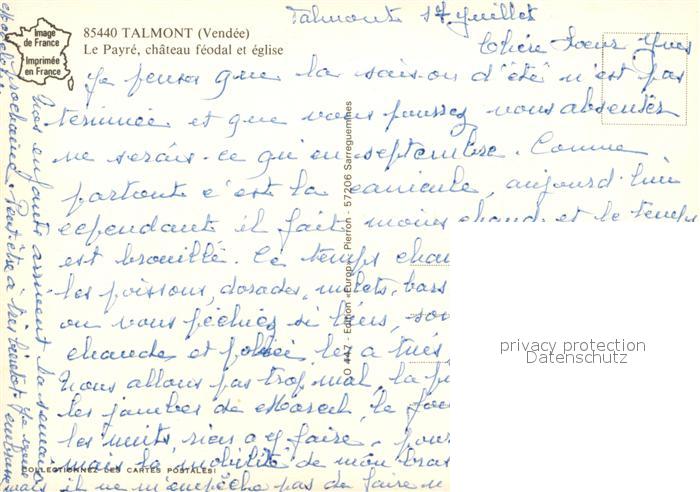 Talmont 17 juillet
Image
de France
Imprimée
en France
85440 TALMONT (Vendée)
Le Payré, château féodal et église
Chère Soeur Yves
Je pense que la saison d'été n'est pas
terminée et que vous pourrez vous absenter
ne serais-ce qu'en septembre. Comme
partout c'est la canicule, aujourd'hui
cependant il fait moins chaud et le temps
est brouillé. Ce temps chau
les poissons, dorades, mulets, bars
ou vous pêchiez si bien,
chaude et polluée les a tués
Nous allons pas trop mal, la
les jambes de
les nuits, rien a y faire
mais la mobilité de mon bras
mais il ne m'empêche pas de faire
Nos enfants arrivent la semaine
prochaine. Peut-être à très bientôt
O 447 - Edition «Europ» Pierron - 57206 Sarreguemines
COLLECTIONNEZ DES CARTES POSTALES!
privacy protection
Datenschutz